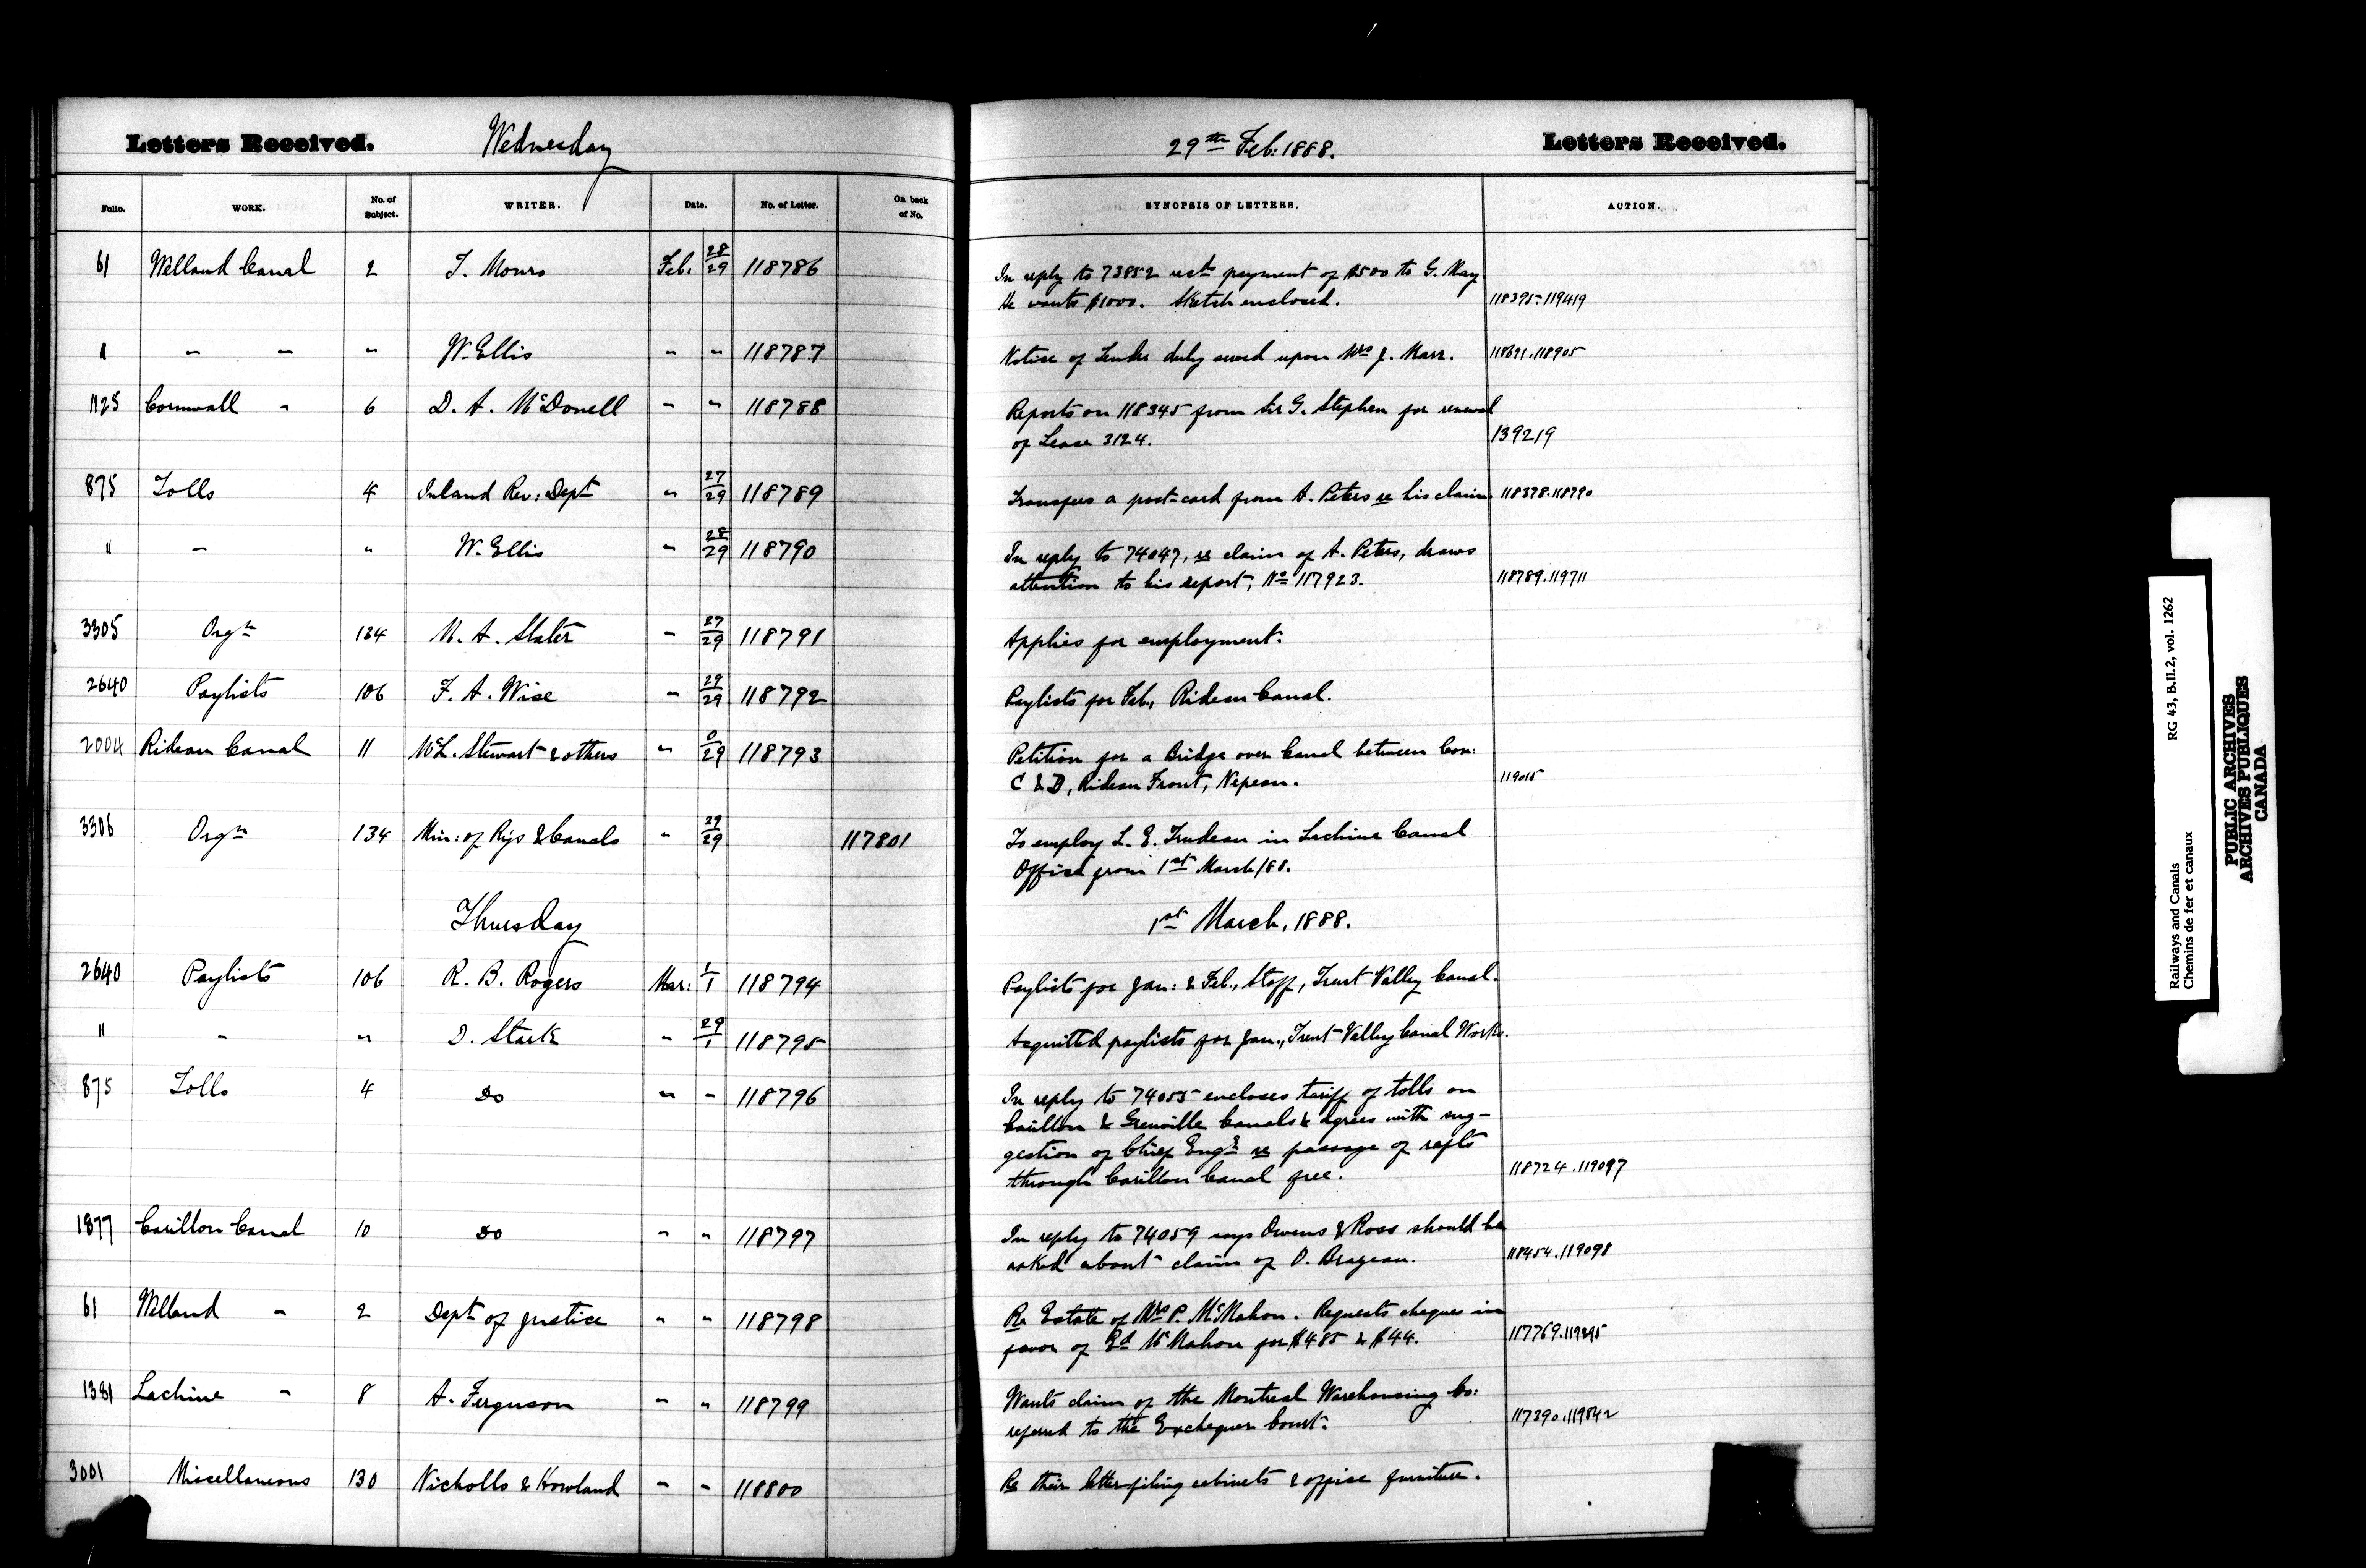 Letters Received. Wednesday 29th Feb: 1888. Letters Received.
Folio. WORK. No. of Subject. WRITER. Date. No. of Letter. On back of No. SYNOPSIS OF LETTERS. ACTION.
61 Welland Canal 2 T. Monro Feb: 28/29 118786 In reply to 73852 rects payment of $500 to G. May.
He wants $1000. Sketch enclosed. 118395-119419
" " " " W. Ellis " " 118787 Notice of Tender duly served upon Mrs J. Marr. 118691.118905
1125 Cornwall " 6 D. A. McDonell " " 118788 Reports on 118345 from Sir G. Stephen for renewal
of Lease 3124. 139219
875 Tolls 4 Inland Rev: Dept " 27/29 118789 Transfers a post-card from A. Peters re his claim 118378.118790
" " " W. Ellis " 28/29 118790 In reply to 74047, re claim of A. Peters, draws
attention to his report, No 117923. 118789.119711
3305 Orgn 134 N. A. Slater " 27/29 118791 Applies for employment.
2640 Paylists 106 F. A. Wise " 29/29 118792 Paylists for Feb., Rideau Canal.
2004 Rideau Canal 11 McL. Stewart & others " 0/29 118793 Petition for a Bridge over Canal between Con:
C & D, Rideau Front, Nepean. 119015
3306 Orgn 134 Min: of Rys & Canals " 29/29 117801 To employ L. E. Trudeau in Lachine Canal
Office from 1st March/88.
Thursday 1st March, 1888.
2640 Paylists 106 R. B. Rogers Mar: 1/1 118794 Paylists for Jan: & Feb., Staff, Trent Valley Canal.
" " " D. Stark " 29/1 118795 Acquitted paylists for Jan., Trent Valley Canal Works.
875 Tolls 4 Do " " 118796 In reply to 74055 encloses tariff of tolls on
Carillon & Grenville Canals & agrees with sug-
gestion of Chief Engr re passage of rafts
through Carillon Canal free. 118724.119097
1877 Carillon Canal 10 Do " " 118797 In reply to 74059 says Owens & Ross should be
asked about claim of O. Brazeau. 118454.119098
61 Welland " 2 Dept of Justice " " 118798 Re Estate of Mrs P. McMahon. Requests cheques in
favor of Ed McMahon for $485 & $44. 117769.119295
1381 Lachine " 8 A. Ferguson " " 118799 Wants claim of the Montreal Warehousing Co:
referred to the Exchequer Court. 117390.119842
3001 Miscellaneous 130 Nicholls & Howland " " 118800 Re their letter-filing cabinets & office furniture.
RG 43, B.II.2, vol. 1262
Railways and Canals
Chemins de fer et canaux
PUBLIC ARCHIVES
ARCHIVES PUBLIQUES
CANADA